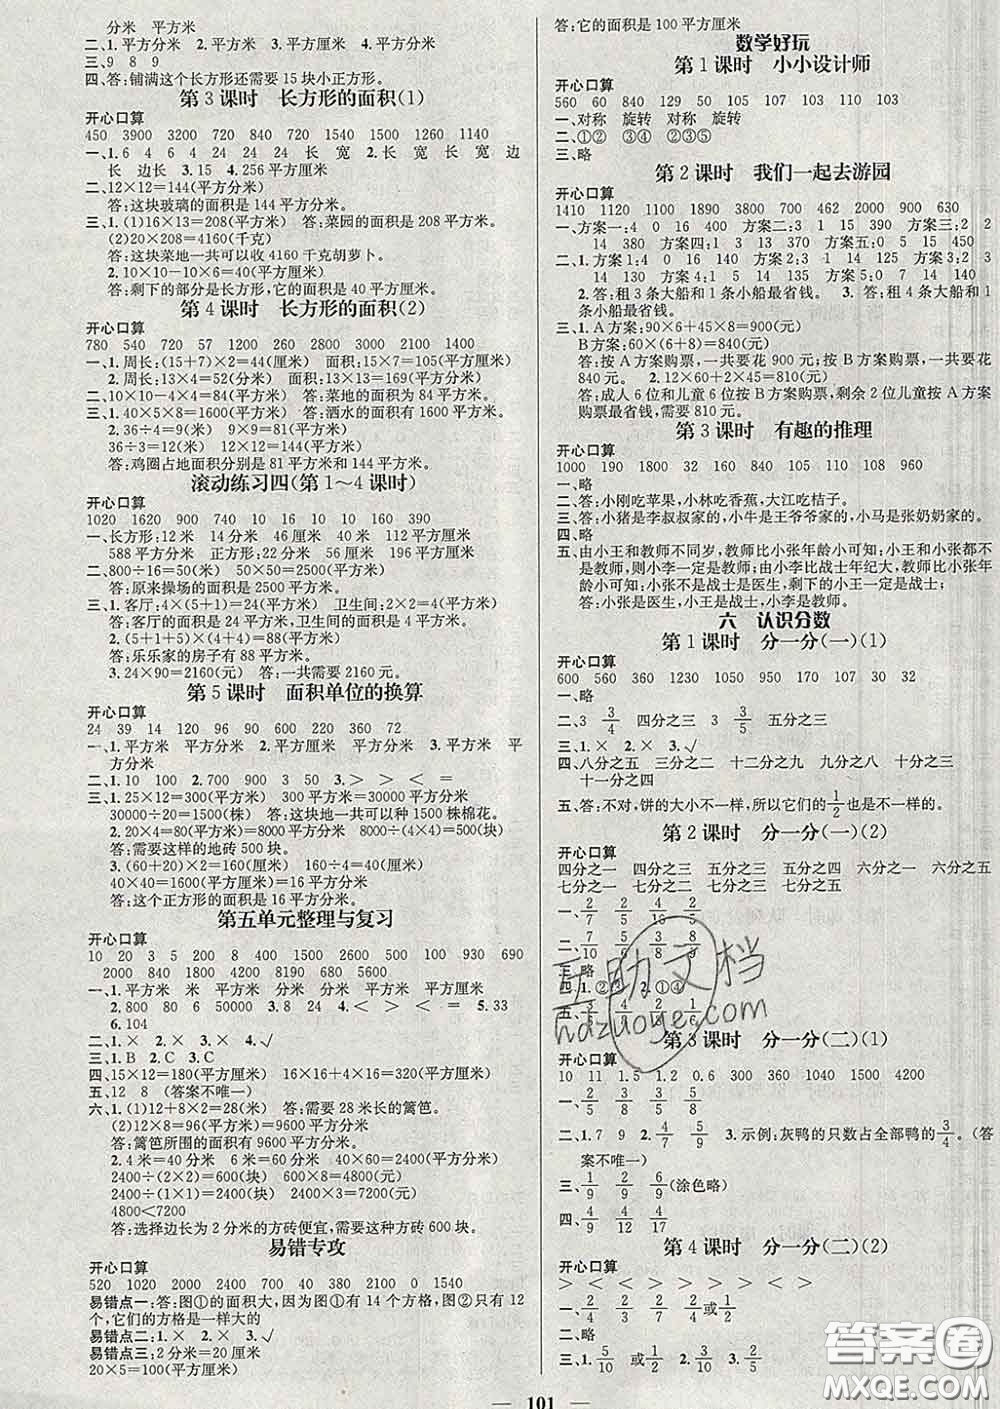 分米　平方米
二、1.平方分米　2.平方米　3.平方厘米　4.平方米
三、9　8　9
四、答:铺满这个长方形还需要 15 块小正方形。
第 3 课时　长方形的面积(1)
开心口算
450　3900　3200　720　840　720　1050　1500　1260　1140
一、1. 6　4　6　4　24　24　24　长　宽　2.长　宽　长　宽　边
长　边长　3. 15　4. 256 平方厘米
二、12×12=144(平方分米)
答:这块玻璃的面积是 144 平方分米。
三、1.(1)16×13=208(平方米)　答:菜园的面积是 208 平方米。
(2)20×208=4160(千克)
答:这块菜地一共可以收 4160 千克胡萝卜。
2. 10×10-10×6=40(平方厘米)
答:剩下的部分是长方形,它的面积是 40 平方厘米。
第 4 课时　长方形的面积(2)
开心口算
780　540　720　57　1200　260　2800　3000　2100　1400
一、1.周长:(15+7)×2=44(厘米)　面积:15×7=105(平方厘米)
2.周长:13×4=52(分米)　面积:13×13=169(平方分米)
二、10×10-4×4=84(平方米)　答:菜地的面积为 84 平方米。
三、1. 40×5×8=1600(平方米)　答:洒水的面积有 1600 平方米。
2. 36÷4=9(米)　9×9=81(平方米)
36÷3=12(米)　12×12=144(平方米)
答:鸡圈占地面积分别是 81 平方米和 144 平方米。
滚动练习四(第 1～4 课时)
开心口算
1020　1620　900　740　10　16　10　10　160　390
一、长方形:12 米　14 分米　46 厘米　28 厘米　112 平方厘米
588 平方分米　正方形:22 分米　56 厘米　196 平方厘米
二、800÷16=50(米)　50×50=2500(平方米)
答:原来操场的面积是 2500 平方米。
三、1.客厅:4×(5+1)=24(平方米)　卫生间:2×2=4(平方米)
答:客厅的面积是 24 平方米,卫生间的面积是 4 平方米。
2.(5+1+5)×(4+4)=88(平方米)
答:乐乐家的房子有 88 平方米。
3. 24×90=2160(元)　答:一共需要 2160 元。
第 5 课时　面积单位的换算
开心口算
24　39　14　120　96　90　600　220　360　72
一、1.平方米　平方分米　2.平方厘米　平方分米　3.平方米　平
方分米
二、1. 10　100　2. 700　900　4　3. ＞　＜　＞　＜　=
三、1. 25×12=300(平方米)　300 平方米=30000 平方分米
30000÷20=1500(株)　答:这块地一共可以种 1500 株棉花。
2. 20×4=80(平方米)　80平方米=8000平方分米　8000÷(4×4)=500(块)
答:需要这样的地砖 500 块。
3.(60+20)×2=160(厘米)　160÷4=40(厘米)
40×40=1600(平方厘米)=16 平方分米
答:这个正方形的面积是 16 平方分米。
第五单元整理与复习
开心口算
10　20　3　5　200　8　400　1500　280　900　930　690
2000　840　1800　2000　980　8400　6800　5600
一、1.平方分米　米　平方厘米　分米　平方米　平方米
2. 800　80　6　50000　3. 28　4. ＜　＞　＜　=　5. 33
6. 104
二、1. ×　2. ×　3. ×　4. √
三、1. B　2. C　3. C
四、15×12=180(平方厘米)　16×16+4×4=272(平方厘米)
五、12　8　(答案不唯一)
六、1.(1)12+8×2=28(米)　答:需要 28 米长的篱笆。
(2)12×8=96(平方米)　答:篱笆所围的面积是 96平方米。
2. 4 米=40 分米　6 米=60 分米　40×60=2400(平方分米)
2400÷(2×2)=600(块)　600×8=4800(元)
2400÷(1×1)=2400(块)　2400×3=7200(元)
4800<7200
答:选择边长为 2 分米的方砖便宜,需要这种方砖 600 块。
易错专攻
开心口算
520　1020　2000　2400　700　40　380　2100　0　1540
易错点一:答:图①的面积大,因为图①有 14 个方格,图②只有 12
个,它们的方格是一样大的
易错点二:1. ×　2. ×　3. √
易错点三:2 分米=20 厘米
20×5=100(平方厘米)
答:它的面积是 100 平方厘米
数学好玩
第 1 课时　小小设计师
开心口算
560　60　840　129　50　105　107　103　110　103
一、对称　旋转　对称　旋转
二、①②　③④　②③⑤
三、略
第 2 课时　我们一起去游园
开心口算
1410　1120　1100　1890　3800　700　462　2000　900　630
一、方案一:4　0　16　400　方案二:3　1　15　390　方案三:2　2
14　380　方案四:1　3　13　370　方案五:0　5　15　450
二、1.方案1:4　0　16　140　方案2:3　1　14　125　方案3:2　3
14　130　方案4:1　5　14　135　方案5:0　7　14　140
2.答:租 3 条大船和 1 条小船最省钱。　3.答:租 4 条大船和 1
条小船最省钱。
三、1. A 方案:90×6+45×8=900(元)
B方案:60×(6+8)=840(元)
答:按 A 方案购票,一共要花 900 元;按 B 方案购票,一共要花
840 元。　2. 12×60+2×45=810(元)
答:成人 6 位和儿童 6 位按 B 方案购票,剩余 2 位儿童按 A 方案
购票最省钱,需要 810 元。
第 3 课时　有趣的推理
开心口算
1000　190　1800　32　160　805　105　110　108　960
一、略
二、答:小刚吃苹果,小林吃香蕉,大江吃桔子。
三、答:小猪是李叔叔家的,小牛是王爷爷家的,小马是张奶奶家的。
四、略
五、由小王和教师不同岁,教师比小张年龄小可知:小王和小张都不
是教师,则小李一定是教师;由小李比战士年纪大,教师比小张年龄
小可知:小张不是战士是医生,剩下的小王一定是战士;
答:小张是医生,小王是战士,小李是教师。
六　认识分数
第 1 课时　分一分(一)(1)
开心口算
600　560　360　1230　1050　950　357　107　30　32
一、略
二、3　3/4　四分之三　3　3/5　五分之三
三、1. ×　2. ×　3. √
四、八分之五　三分之二　十二分之九　九分之八　六分之一
十一分之四
五、答:不对,饼的大小不一样,所以它们的1/2也是不一样的。
第 2 课时　分一分(一)(2)
开心口算
四分之一　四分之三　五分之三　五分之四　六分之一　六分之五
七分之一　七分之二　七分之三　七分之五
三、略
四、1. ②③　2. ①④
第 3 课时　分一分(二)(1)
开心口算
10　11　1.5　1.2　0.6　300　360　1040　1500　4200
二、1. 7　9　2. 4/7　5/9　3.示例:灰鸭的只数占全部鸭的3/4。(答
案不唯一)
三、1/9　2/9　6/9(涂色略)
四、4/9　4/12　4/17
第 4 课时　分一分(二)(2)
开心口算
＞　＜　＞　＜　＜　＞　＞　＞　＜　＜
一、1/2　2/3　2/4或1/2
二、略
三、1. 5/10　或1/2　2. 3/10　3. 2/10　或1/5
互助文档
hdzuoye.com
答案圈
MXQE.COM
— 101 —